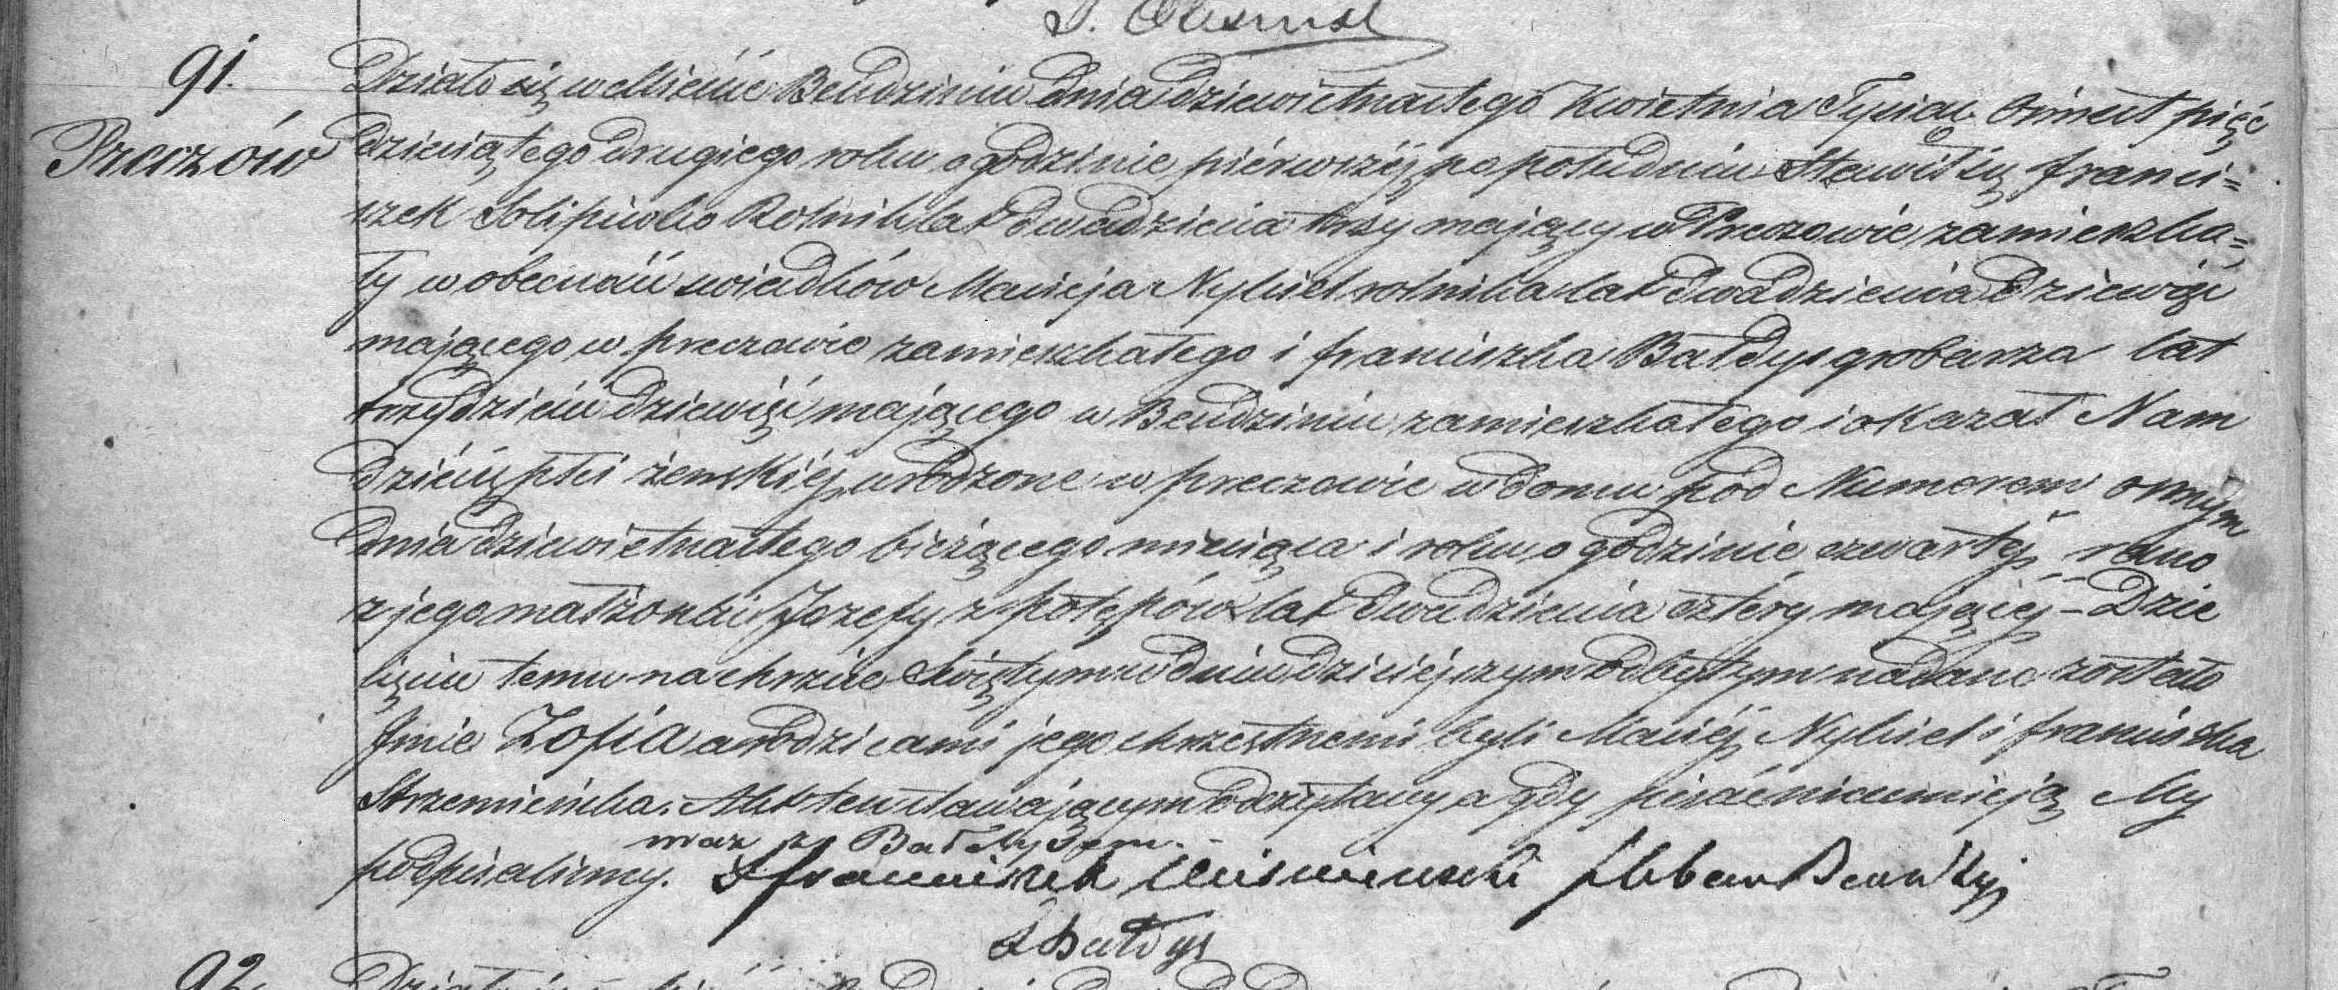 91.
Preczów
Działo się w Mieście Bendzinie dnia dziewietnastego Kwietnia Tysiac Ośmset pięć
dziesiątego drugiego roku o godzinie piérwszéj po południu Stawił się Franci=
szek Rolnik lat dwadzieścia trzy mający w Preczowie zamieszka=
ły w obecności swiadków Macieja Nykiel rolnika lat dwadzieścia dziewięć
mającego w preczowie zamieszkałego i franciszka Bałdys grobarza lat
trzydzieści dziewięć mającego w Bendzinie zamieszkałego i okazał Nam
dziécię płci żeńskiéj urodzone w preczowie w domu pod Numerem osmym
dnia dziewietnastego bieżącego miesiąca i roku o godzinie czwartéj rano
z jego małżonki Jozefy z Potępów lat dwadzieścia cztéry mającéj – Dzie
cięciu temu na chrzcie Świętym w dniu dzisiéjszym odbytym nadane zostało
Jmie Zofia a rodzicami jego chrzestnemi byli Maciéj Nykiel i franciszka
Strzemieńska. Akt ten stawającym odczytany a gdy pisać nieumieją My
podpisaliśmy. wraz ze Bałdysem.
Franciszek Pleban Będzki
F Bałdys
92.